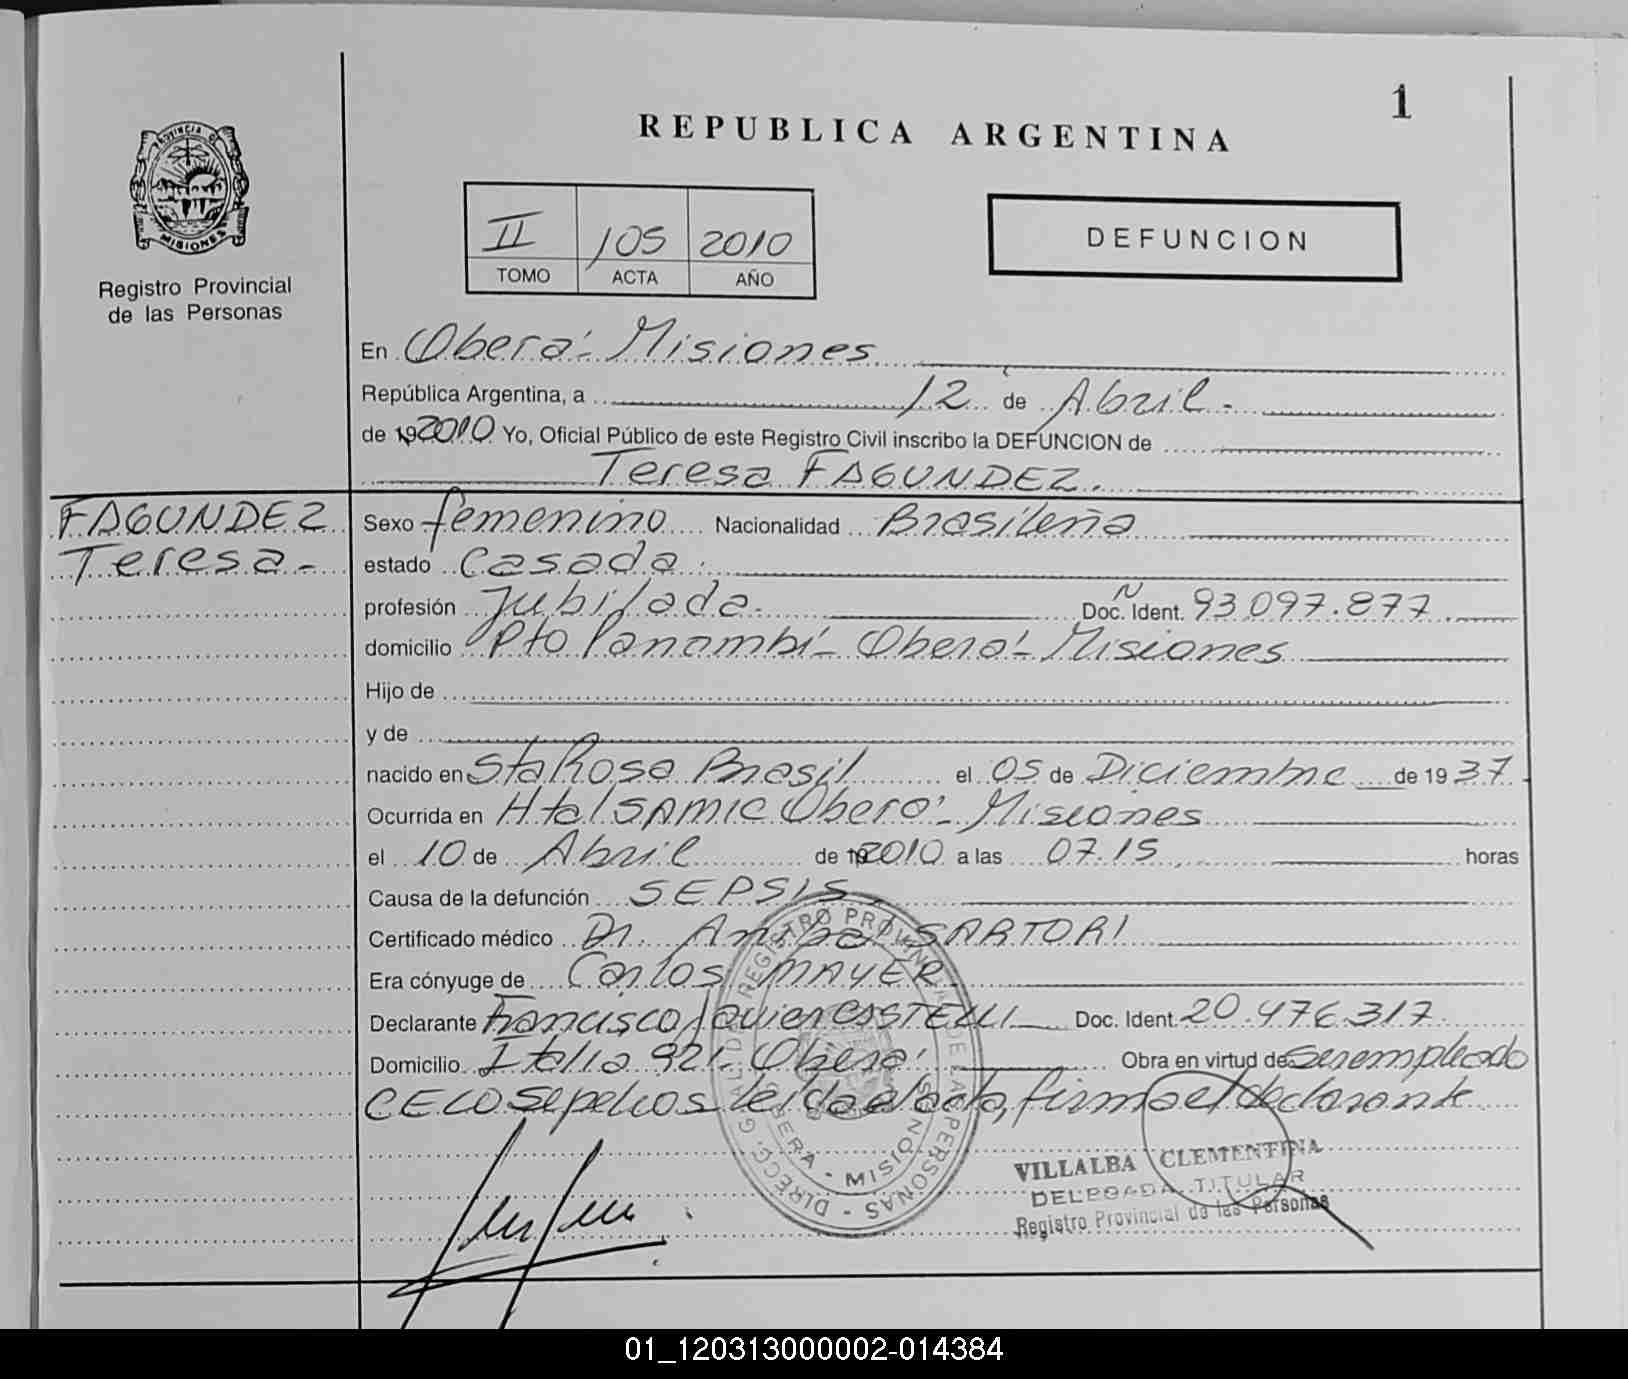 1
REPUBLICA ARGENTINA
PROVINCIA DE
MISIONES
Registro Provincial
de las Personas
II 105 2010
TOMO ACTA AÑO
DEFUNCION
En Oberá - Misiones
República Argentina, a 12 de Abril -
de 192010 Yo, Oficial Público de este Registro Civil inscribo la DEFUNCION de
Teresa FAGUNDEZ.
FAGUNDEZ
Teresa -
Sexo femenino Nacionalidad Brasileña
estado Casada.
profesión Jubilada. Doc. Ident. 93.097.877
domicilio Pto Panambí - Oberá - Misiones
Hijo de
y de
nacido en Sta Rosa Brasil el 05 de Diciembre de 1937.
Ocurrida en Htal SAMIC Oberá - Misiones
el 10 de Abril de 192010 a las 07.15 horas
Causa de la defunción SEPSIS.
Certificado médico Dr. Anibal SARTORI
Era cónyuge de Carlos MAYER.
Declarante Francisco Javier CASTELLI Doc. Ident. 20.476.317.
Domicilio Italia 921. Oberá. Obra en virtud de Ser empleado
CELO Sepelios leída el acta, firma el declarante
DIRECC. GRAL. DEL REGISTRO PROVINCIAL DE LAS PERSONAS -
OBERA - MISIONES
VILLALBA CLEMENTINA
DELEGADA TITULAR
Registro Provincial de las Personas
01_120313000002-014384